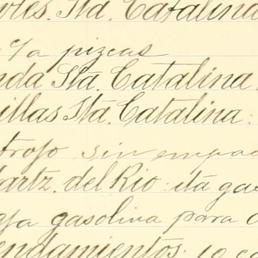 oles. Sta. Catalina
o/a pizcas
nda Sta. Catalina.
illas Sta. Catalina:
trojo sin empac
artz. del Rio: ita gas
gasolina para
endamientos: 10 c